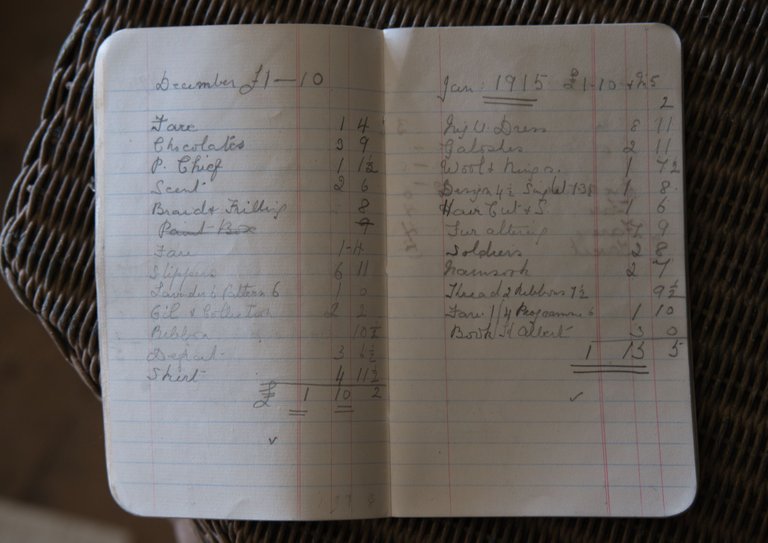 December £1—10
Fare 1 4
Chocolates 3 9
P. Chief 1 1½
Scent 2 6
Braid & Frilling 8
Paint Box 9
Fare 1-4
Slippers 6 11
Lavender & Pattern 6 1 0
& Collection 2 2
Ribbon 10½
3 6½
Skirt 4 11½
£ 1 10 2
✓
Jan: 1915 £1-10
2
Dress 8 11
Galoshes 2 11
Wool & 1 7½
Design 4½ 1 8
Hair Cut & S. 1 6
Fur altering 9
Soldiers 2 8
Nainsook 2 7
Thread 2 Ribbons 7½ 9½
Fare 1/4 Programme 6 1 10
Book K Albert 3 0
1 13 5
✓